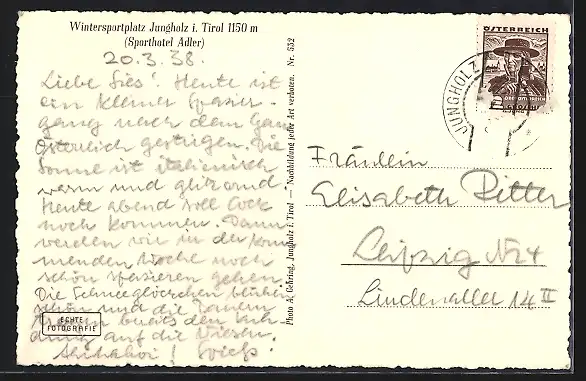 Wintersportplatz Jungholz i. Tirol 1150 m
(Sporthotel Adler)
20.3.38.
Liebe Sies! Heute ist
ein kleiner Spazier-
gang nach dem
Österreich gestiegen. Die
Sonne ist italienisch
warm und
Heute abend soll
noch kommen. Dann
werden wir in der kom
menden Woche noch
schön spazieren gehen.
Die Schneeglöckchen blühen
schon und die
bereits den
auf die Wiesen.
ECHTE
FOTOGRAFIE
Photo A. Gehring, Jungholz i. Tirol — Nachbildung jeder Art verboten. Nr. 532
ÖSTERREICH
JUNGHOLZ
Fräulein
Elisabeth Ritter
Leipzig N24
Lindenallee 14 II